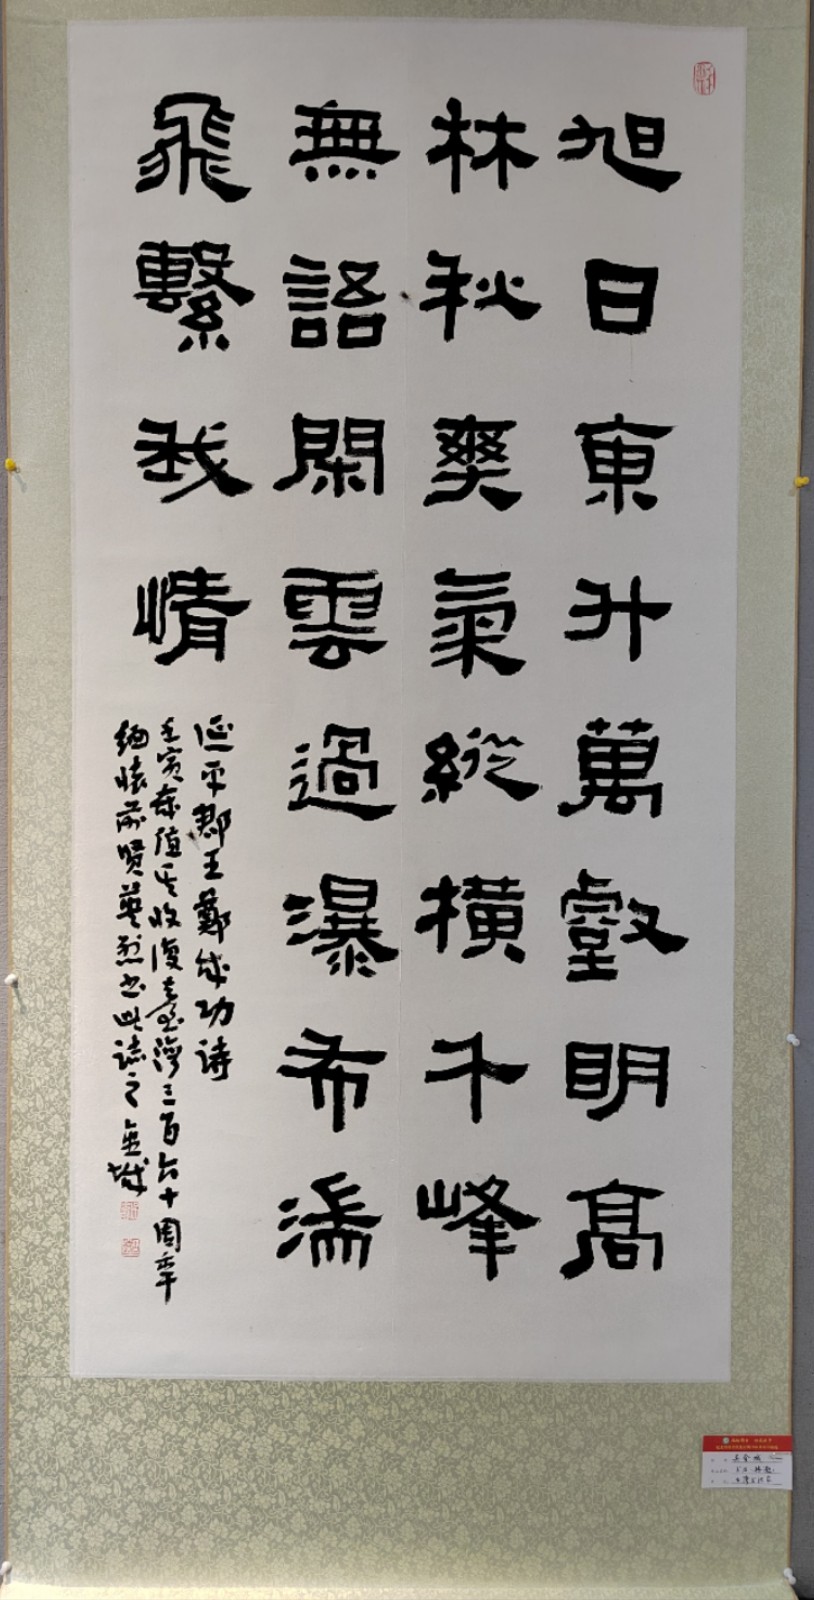 旭日東升萬壑明高
林秋爽氣縱橫千峰
無語閑雲過瀑布濡
飛繫我情
延平郡王鄭成功詩
壬寅春值其收復臺灣三百六十周年
緬懷前賢英烈書此誌之 金城